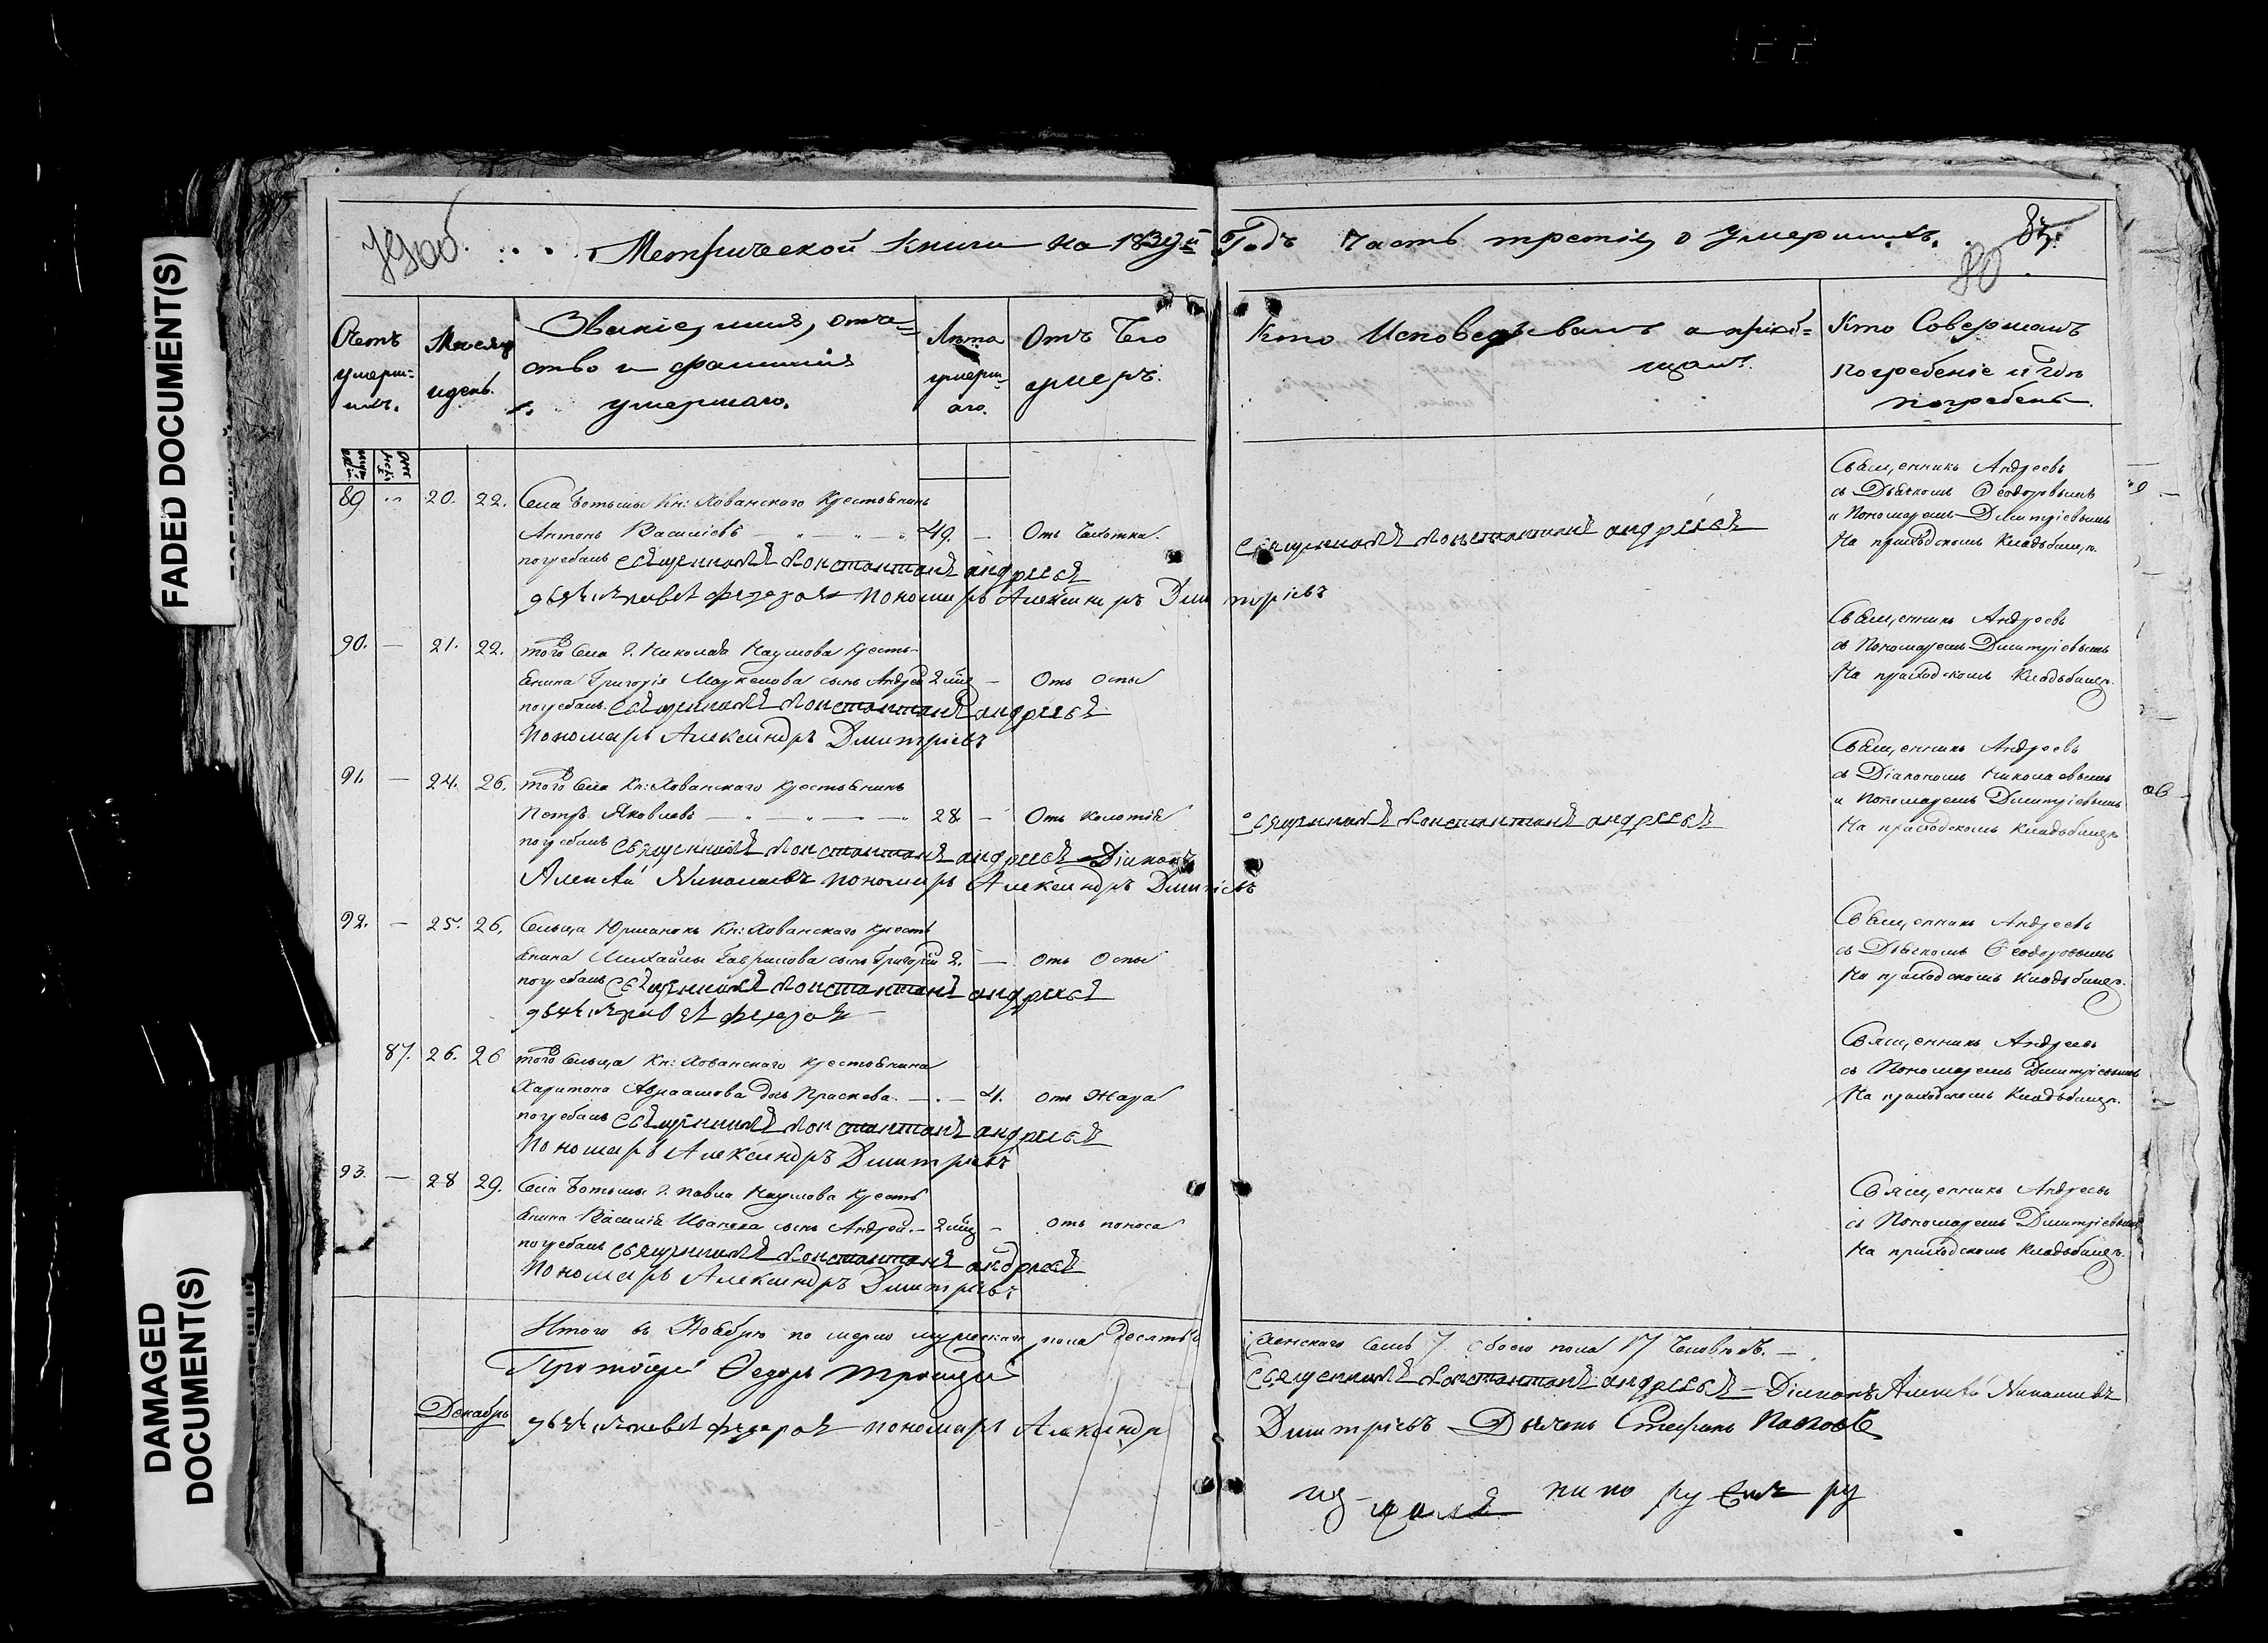 122
FADED DOCUMENT(S)
DAMAGED
DOCUMENT(S)
79об.
Метрической книги на 1839й Годъ часть третія, о умершихъ.
80
Счетъ умерш=ихъ.
Мѣсяцъ и день.
Званіе, имя, отче=
ство и фамилія
умершаго.
Лѣта умерш=аго.
Отъ Чего
умеръ.
Кто Исповѣдывалъ и пріоб=
щалъ.
Кто Совершалъ
погребеніе и Гдѣ
погребенъ.
89 20. 22. Села Ботьмы Кн: Хованскаго Крестьянинъ
Антонъ Василіевъ 49. — Отъ Чахотки.
погребалъ священникъ Константинъ андреевъ
дьячекъ федоровъ пономарь Александръ Дмитріевъ
священникъ Константинъ андреевъ
Священникъ Андреевъ
съ Дьячкомъ Ѳеодоровымъ
и Пономаремъ Дмитріевымъ
На приходскомъ Кладбищѣ.
90. — 21. 22. того Села Г. Николая Наумова кресть-
янина Григорія Маркелова сынъ Андрей 2 — Отъ Оспы
погребалъ священникъ Константинъ андреевъ
Пономарь Александръ Дмитріевъ
Священникъ Андреевъ
съ Пономаремъ Дмитріевымъ
На приходскомъ Кладбищѣ.
91. — 24. 26. того Села Кн: Хованскаго Крестьянинъ
Петръ Яковлевъ 28 — Отъ колотія
погребалъ священникъ Константинъ андреевъ Діаконъ
Алексѣй Николаевъ пономарь Александръ Дмитріевъ
священникъ Константинъ андреевъ
Священникъ Андреевъ
съ Діакономъ Николаевымъ
и Пономаремъ Дмитріевымъ
На приходскомъ Кладбищѣ
92. — 25. 26. Сельца Юрманокъ Кн: Хованскаго кресть
янина Михайлы Гаврилова сынъ Григорій 2. — Отъ Оспы
погребалъ священникъ Константинъ андреевъ
дьячекъ федоровъ
Священникъ Андреевъ
съ Дьячкомъ Ѳеодоровымъ
На приходскомъ Кладбищѣ.
87. 26. 26 того Сельца Кн: Хованскаго крестьянина
Харитона Авраамова дочь Праскева 4. отъ Жара
погребалъ священникъ Константинъ андреевъ
Пономарь Александръ Дмитріевъ
Священникъ Андреевъ
съ Пономаремъ Дмитріевымъ
На приходскомъ Кладбищѣ.
93. — 28 29. Села Ботьмы Г. Павла Наумова кресть
янина Василія сынъ Андрей 2 — отъ поноса
погребалъ священникъ Константинъ андреевъ
Пономарь Александръ Дмитріевъ
Священникъ Андреевъ
съ Пономаремъ Дмитріевымъ
На приходскомъ Кладбищѣ.
Итого въ Ноябрѣ померло мужескаго пола десять женскаго семь 7. обоего пола 17 Человѣкъ.
Протоіерей Ѳедоръ Троицкій священникъ Константинъ андреевъ Діаконъ Алексѣй Николаевъ
дьячекъ федоровъ пономарь Александръ Дмитріевъ Дьячекъ Стефанъ Поповъ
Декабрь